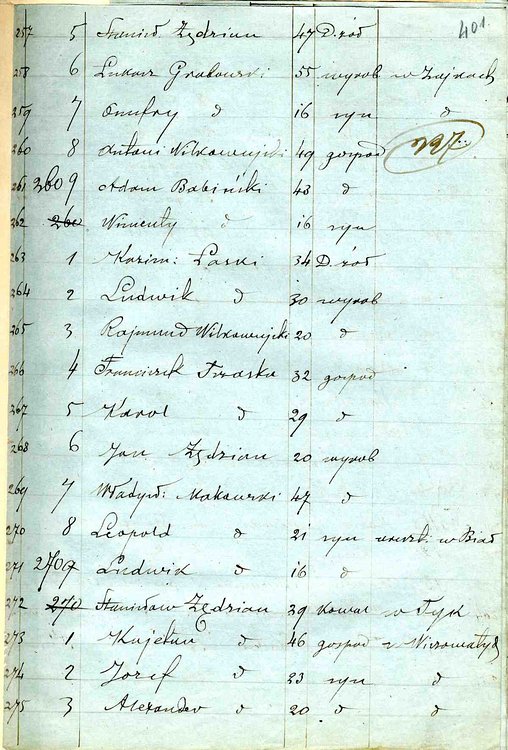 401.
257 5 Stanisł Zędzian 47 D. ród
258 6 Łukasz Grabowski 55 wyrob w Zajkach
259 7 Onufry d 16 syn d
260 8 Antoni Wilkowojski 49 gospod 297.
261 260 9 Adam Babiński 43 d
262 260 Wincenty d 16 syn
263 1 Kazim: Laski 34 D. ród
264 2 Ludwik d 30 wyrob
265 3 Rajmund Wilkowojski 20 d
266 4 Franciszek Trzaska 32 gospod
267 5 Karol d 29 d
268 6 Jan Zędzian 20 wyrob
269 7 Władysł: Makowski 47 d
270 8 Leopold d 21 syn areszt. w Biał
271 270 9 Ludwik d 16 d
272 270 Stanisław Zędzian 39 kowal w Tyk
273 1 Kajetan d 46 gospod
274 2 Jozef d 23 syn d
275 3 Alexander d 20 d d